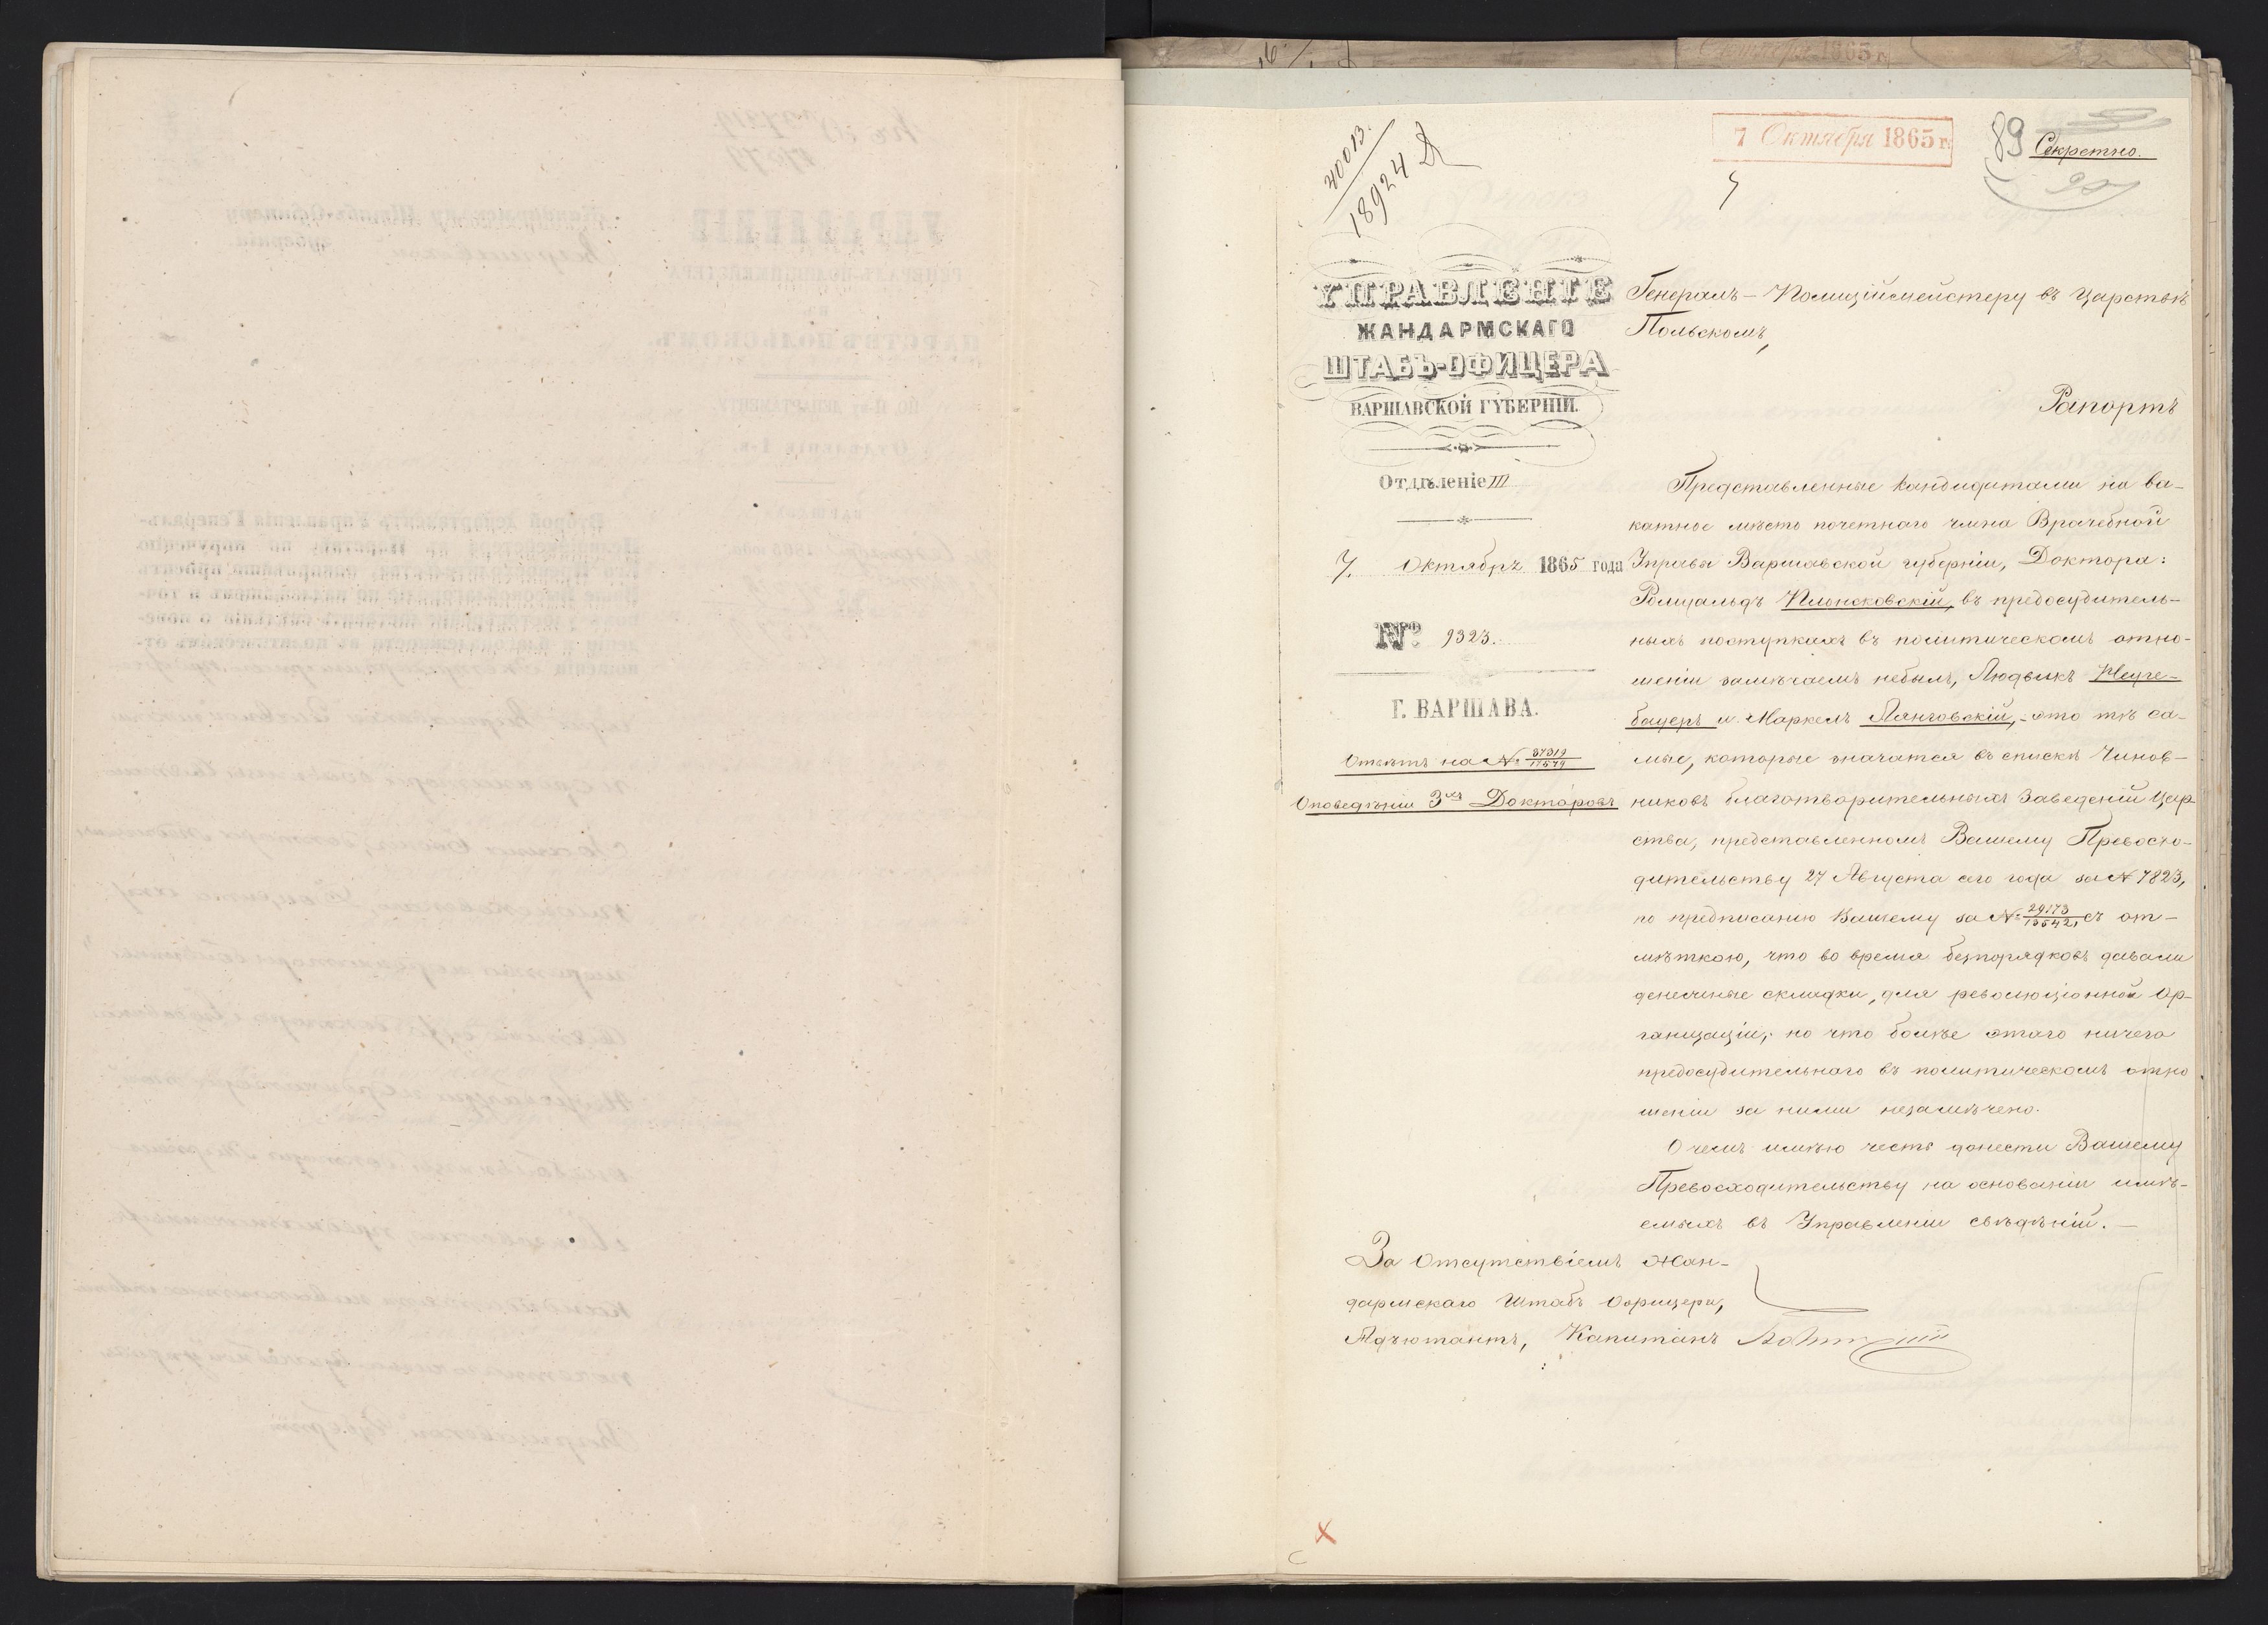 40013.
18924
7 Октября 1865 г.
89
Секретно.
УПРАВЛЕНІЕ
ЖАНДАРМСКАГО
ШТАБЪ-ОФИЦЕРА
ВАРШАВСКОЙ ГУБЕРНІИ.
Отдѣленіе III
7. Октябрь 1865 года
№ 9323.
Г. ВАРШАВА.
Отвѣтъ на № 37319/17579
Оповедѣніи 3хъ Докторовъ
Генералъ-Полиціймейстеру въ Царствѣ
Польскомъ,
Рапортъ
Представленные кандидатами на ва-
катное мѣсто почетнаго члена Врачебной
Управы Варшавской губерніи, Доктора:
Ромуальдъ Плонсковскій, въ предосудитель-
ныхъ поступкахъ въ политическомъ отно-
шеніи замѣчаемъ небылъ, Людвикъ Нейге-
бауеръ и Маркелъ Лянговскій,- это тѣ са-
мые, которые значатся въ списки Чинов-
никовъ благотворительныхъ Заведеній Цар-
ства, представленномъ Вашему Превосхо-
дительству 27 Августа сего года за № 7823,
по предписанію Вашему за № 29173/13642, съ от-
мѣткою, что во время безпорядковъ давали
денежные складки, для революціонной Ор-
ганизаціи; но что болѣе этаго ничего
предосудительнаго въ политическомъ отно
шеніи за ними незамѣчено.
О чемъ имѣю честь донести Вашему
Превосходительству на основаніи имѣ-
емыхъ въ Управленіи свѣдѣній.
За Отсутствіемъ Жан-
дармскаго Штабъ Офицера,
Адъютантъ, Капитанъ